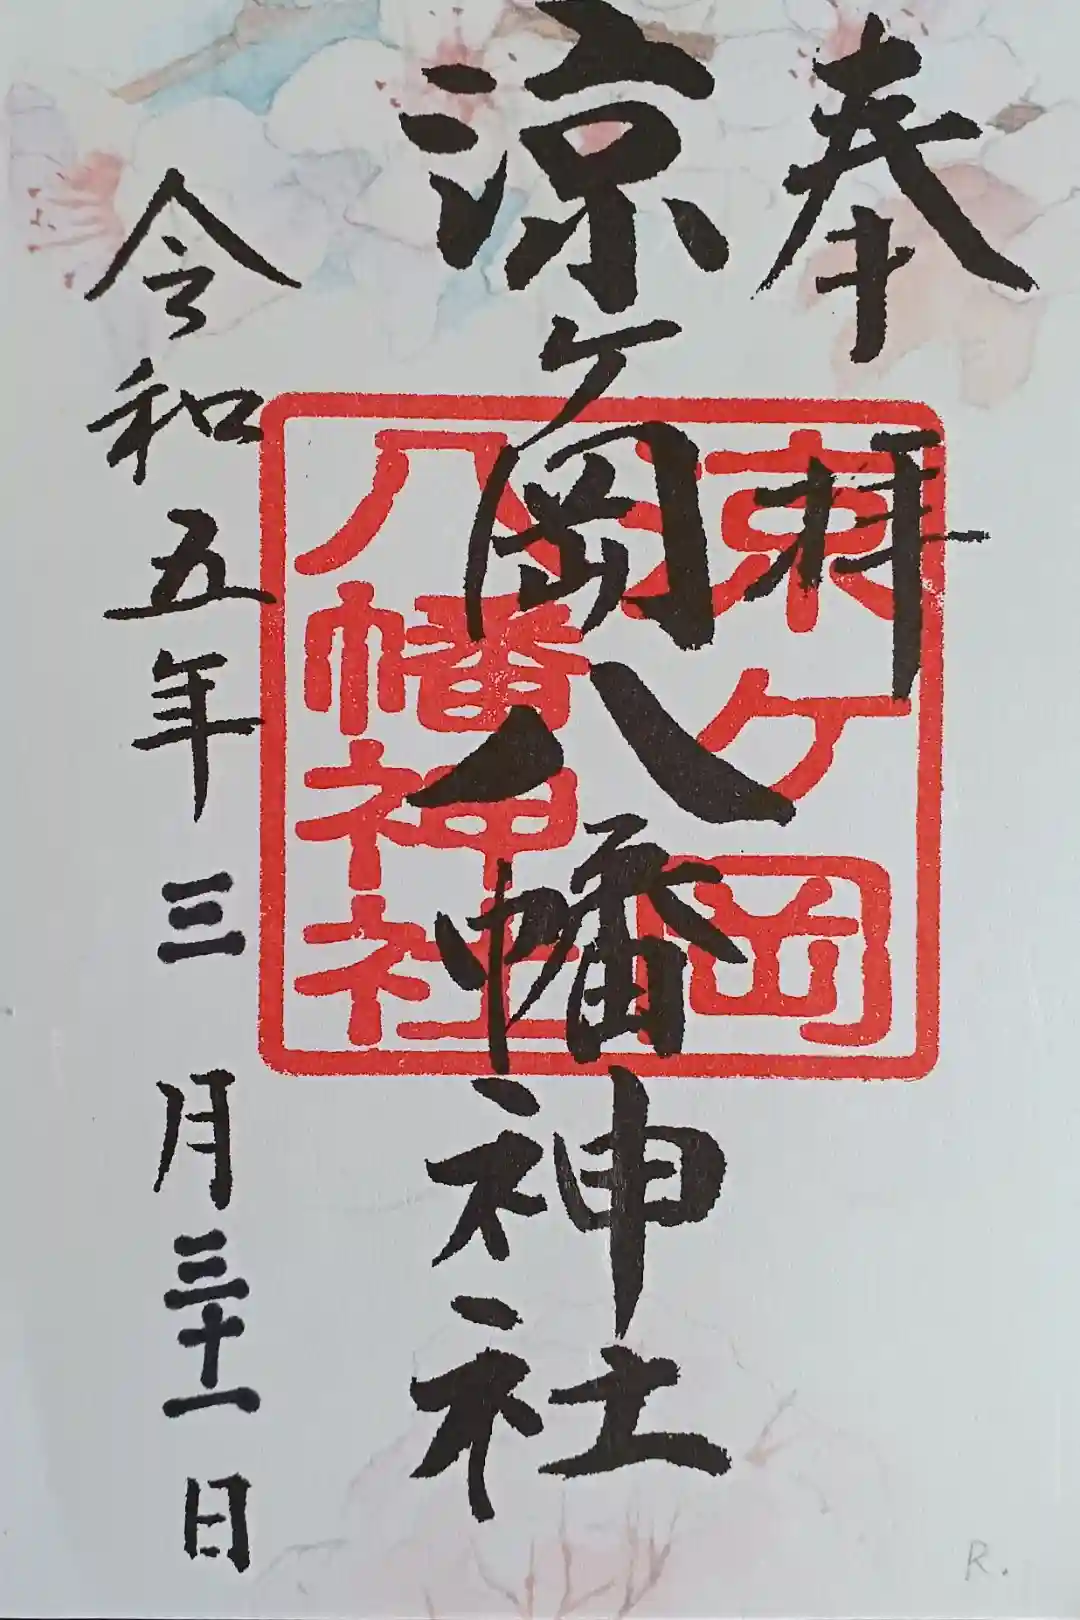 奉拝
涼ケ岡八幡神社
涼ケ岡
八幡神社
令和五年三月三十一日
R.